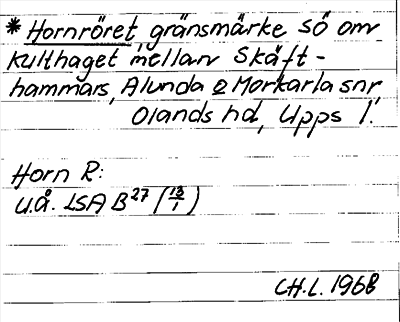 * Hornröret gränsmärke SÖ om
Kulthaget mellan Skäft-
hammars, Alunda & Morkarla snr
Olands hd, Upps l.
Horn R:
U.å. LSA B 27 (13/1)
CH.L. 1968